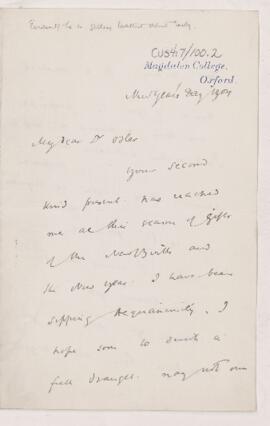 CUS417/100.2
Magdalen College,
Oxford.
New Year's Day 1904
My dear Dr Osler
Your second
kind present has reached
me at this season of gifts
of the New Birth and
the New Year. I have been
sipping Aequanimity. I
hope soon to drink a
full draught. may not our